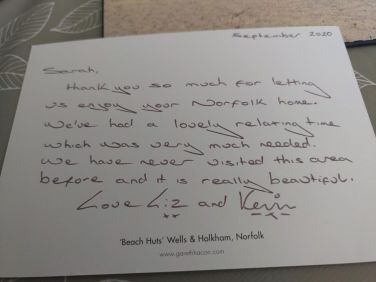 September 2020
Sarah,
Thank you so much for letting
us enjoy your Norfolk home.
We've had a lovely relaxing time
which was very much needed.
We have never visited this area
before and it is really beautiful.
Love Liz and Kevin
xx x
'Beach Huts' Wells & Holkham, Norfolk